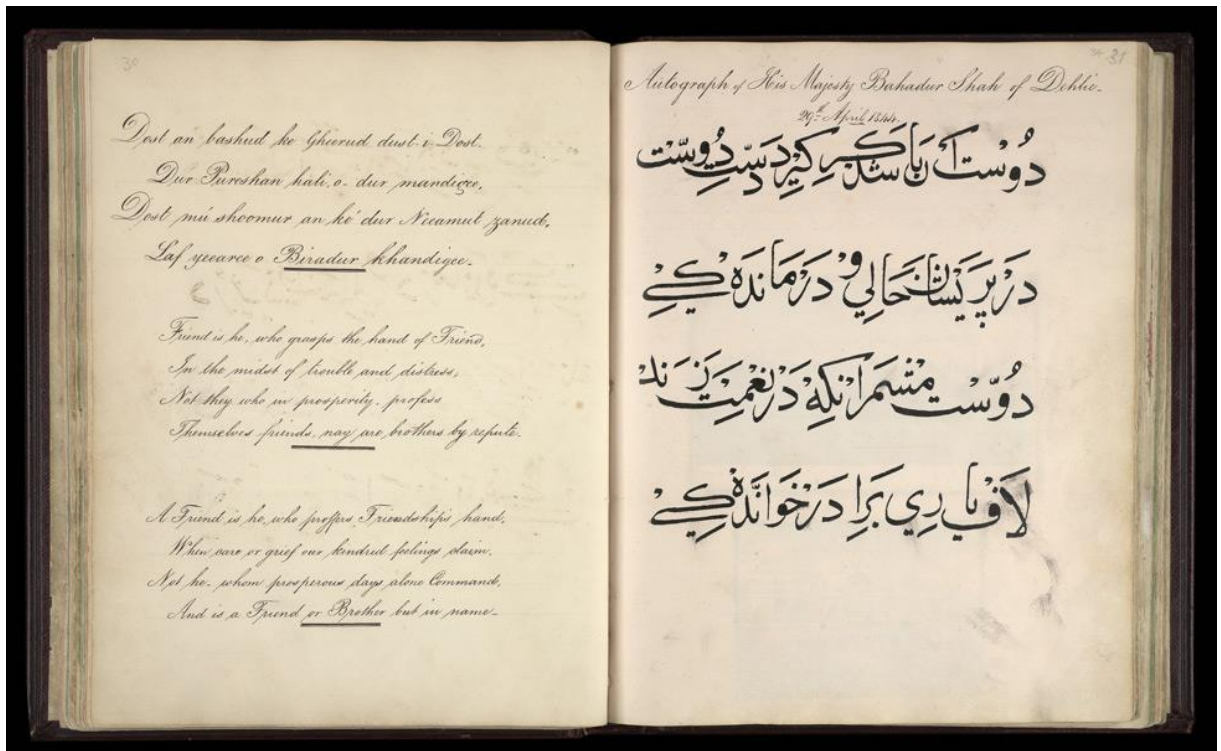 30
Dost an bashud ke Gheerud dust-i-Dost.
Dur Pureshan hali, o- dur mandigee,
Dost mú shoomur an ké dur Neeamut zanud,
Laf yeearee o Biradur khandigee.
Friend is he, who grasps the hand of Friend,
In the midst of trouble and distress,
Not they who in prosperity, profess
Themselves friends, nay are brothers by repute.
A Friend is he, who proffers Friendship's hand,
When care or grief our kindred feelings claim,
Not he whom prosperous days alone Command,
And is a Friend or Brother but in name-
31
Autograph of His Majesty Bahadur Shah of Dehlie.
29th April 1844.
دُوْسْت آنْ بَاشَدْ كِه كِيْرَدْ دَسْتِ دُوسْت
دَرْ پَرِيْشَانْ حَالِي وْ دَرْمَانْدَه كِيْ
دُوْسْت مَشْمَرْ آنْكِه دَرْ نِعْمَتْ زَنَدْ
لَافِ يَارِي بَرَادَرْ خَوانْدَه كِيْ